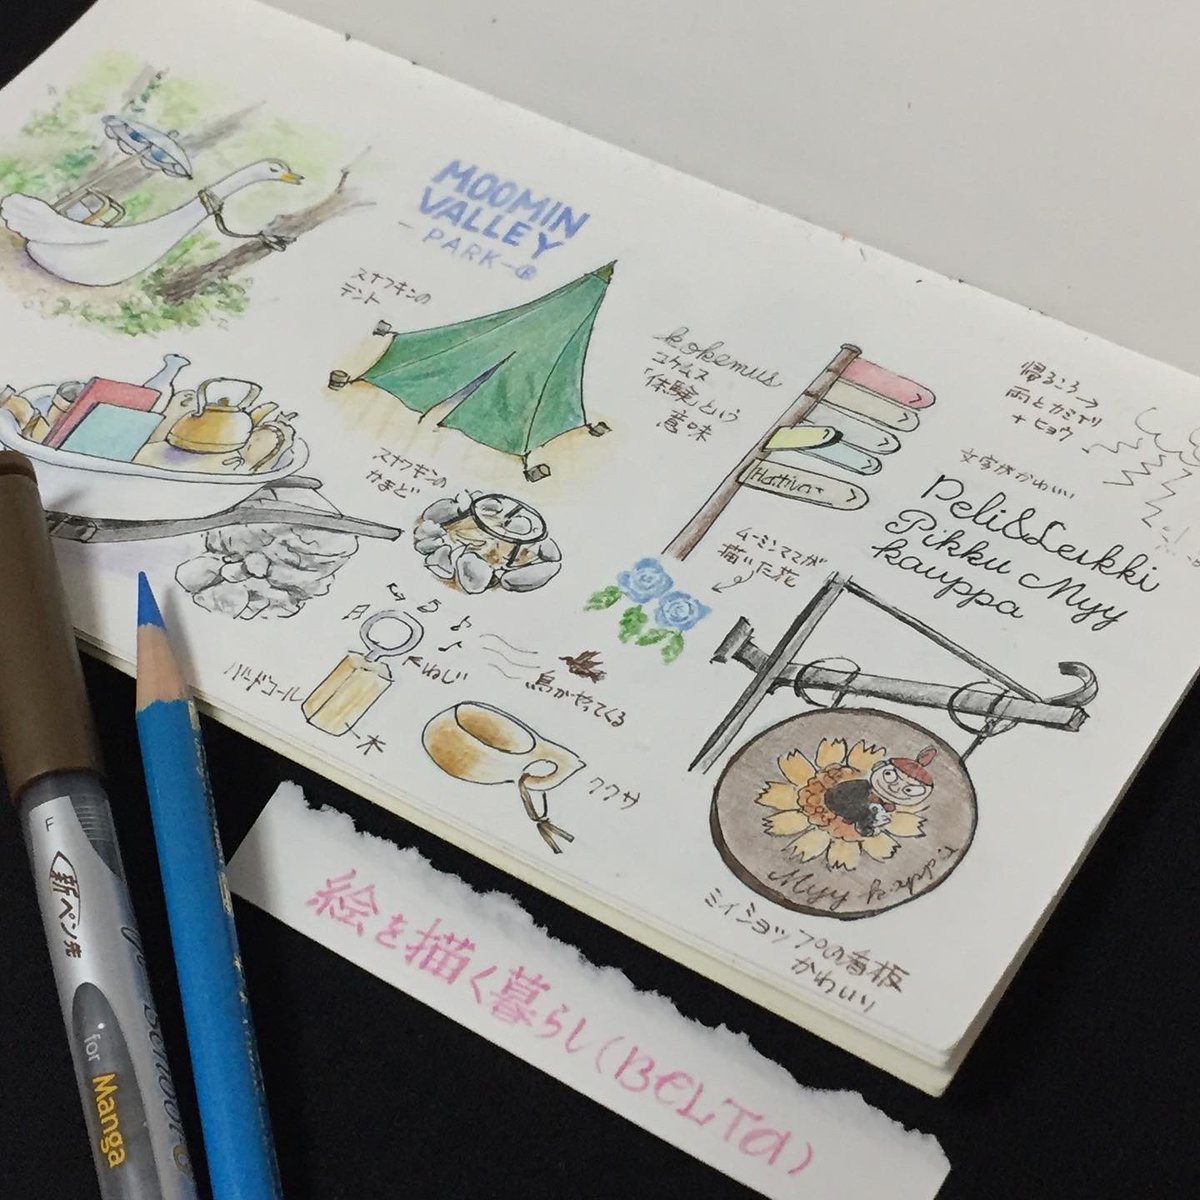 MOOMIN
VALLEY
- PARK -®
スナフキンの
テント
kokemus
コケムス
「体験」という
意味
帰るころ→
雨とカミナリ
+ヒョウ
文字がかわいい
Peli&Leikki
Pikku Myy
kauppa
スナフキンの
かまど
Hattiva
ムーミンママが
描いた花
バードコール
ねじ
木
鳥がやってくる
ククサ
Myy kauppa
ミイショップの看板
かわいい
絵を描く暮らし(BELTA)
F
新ペン先
for Manga